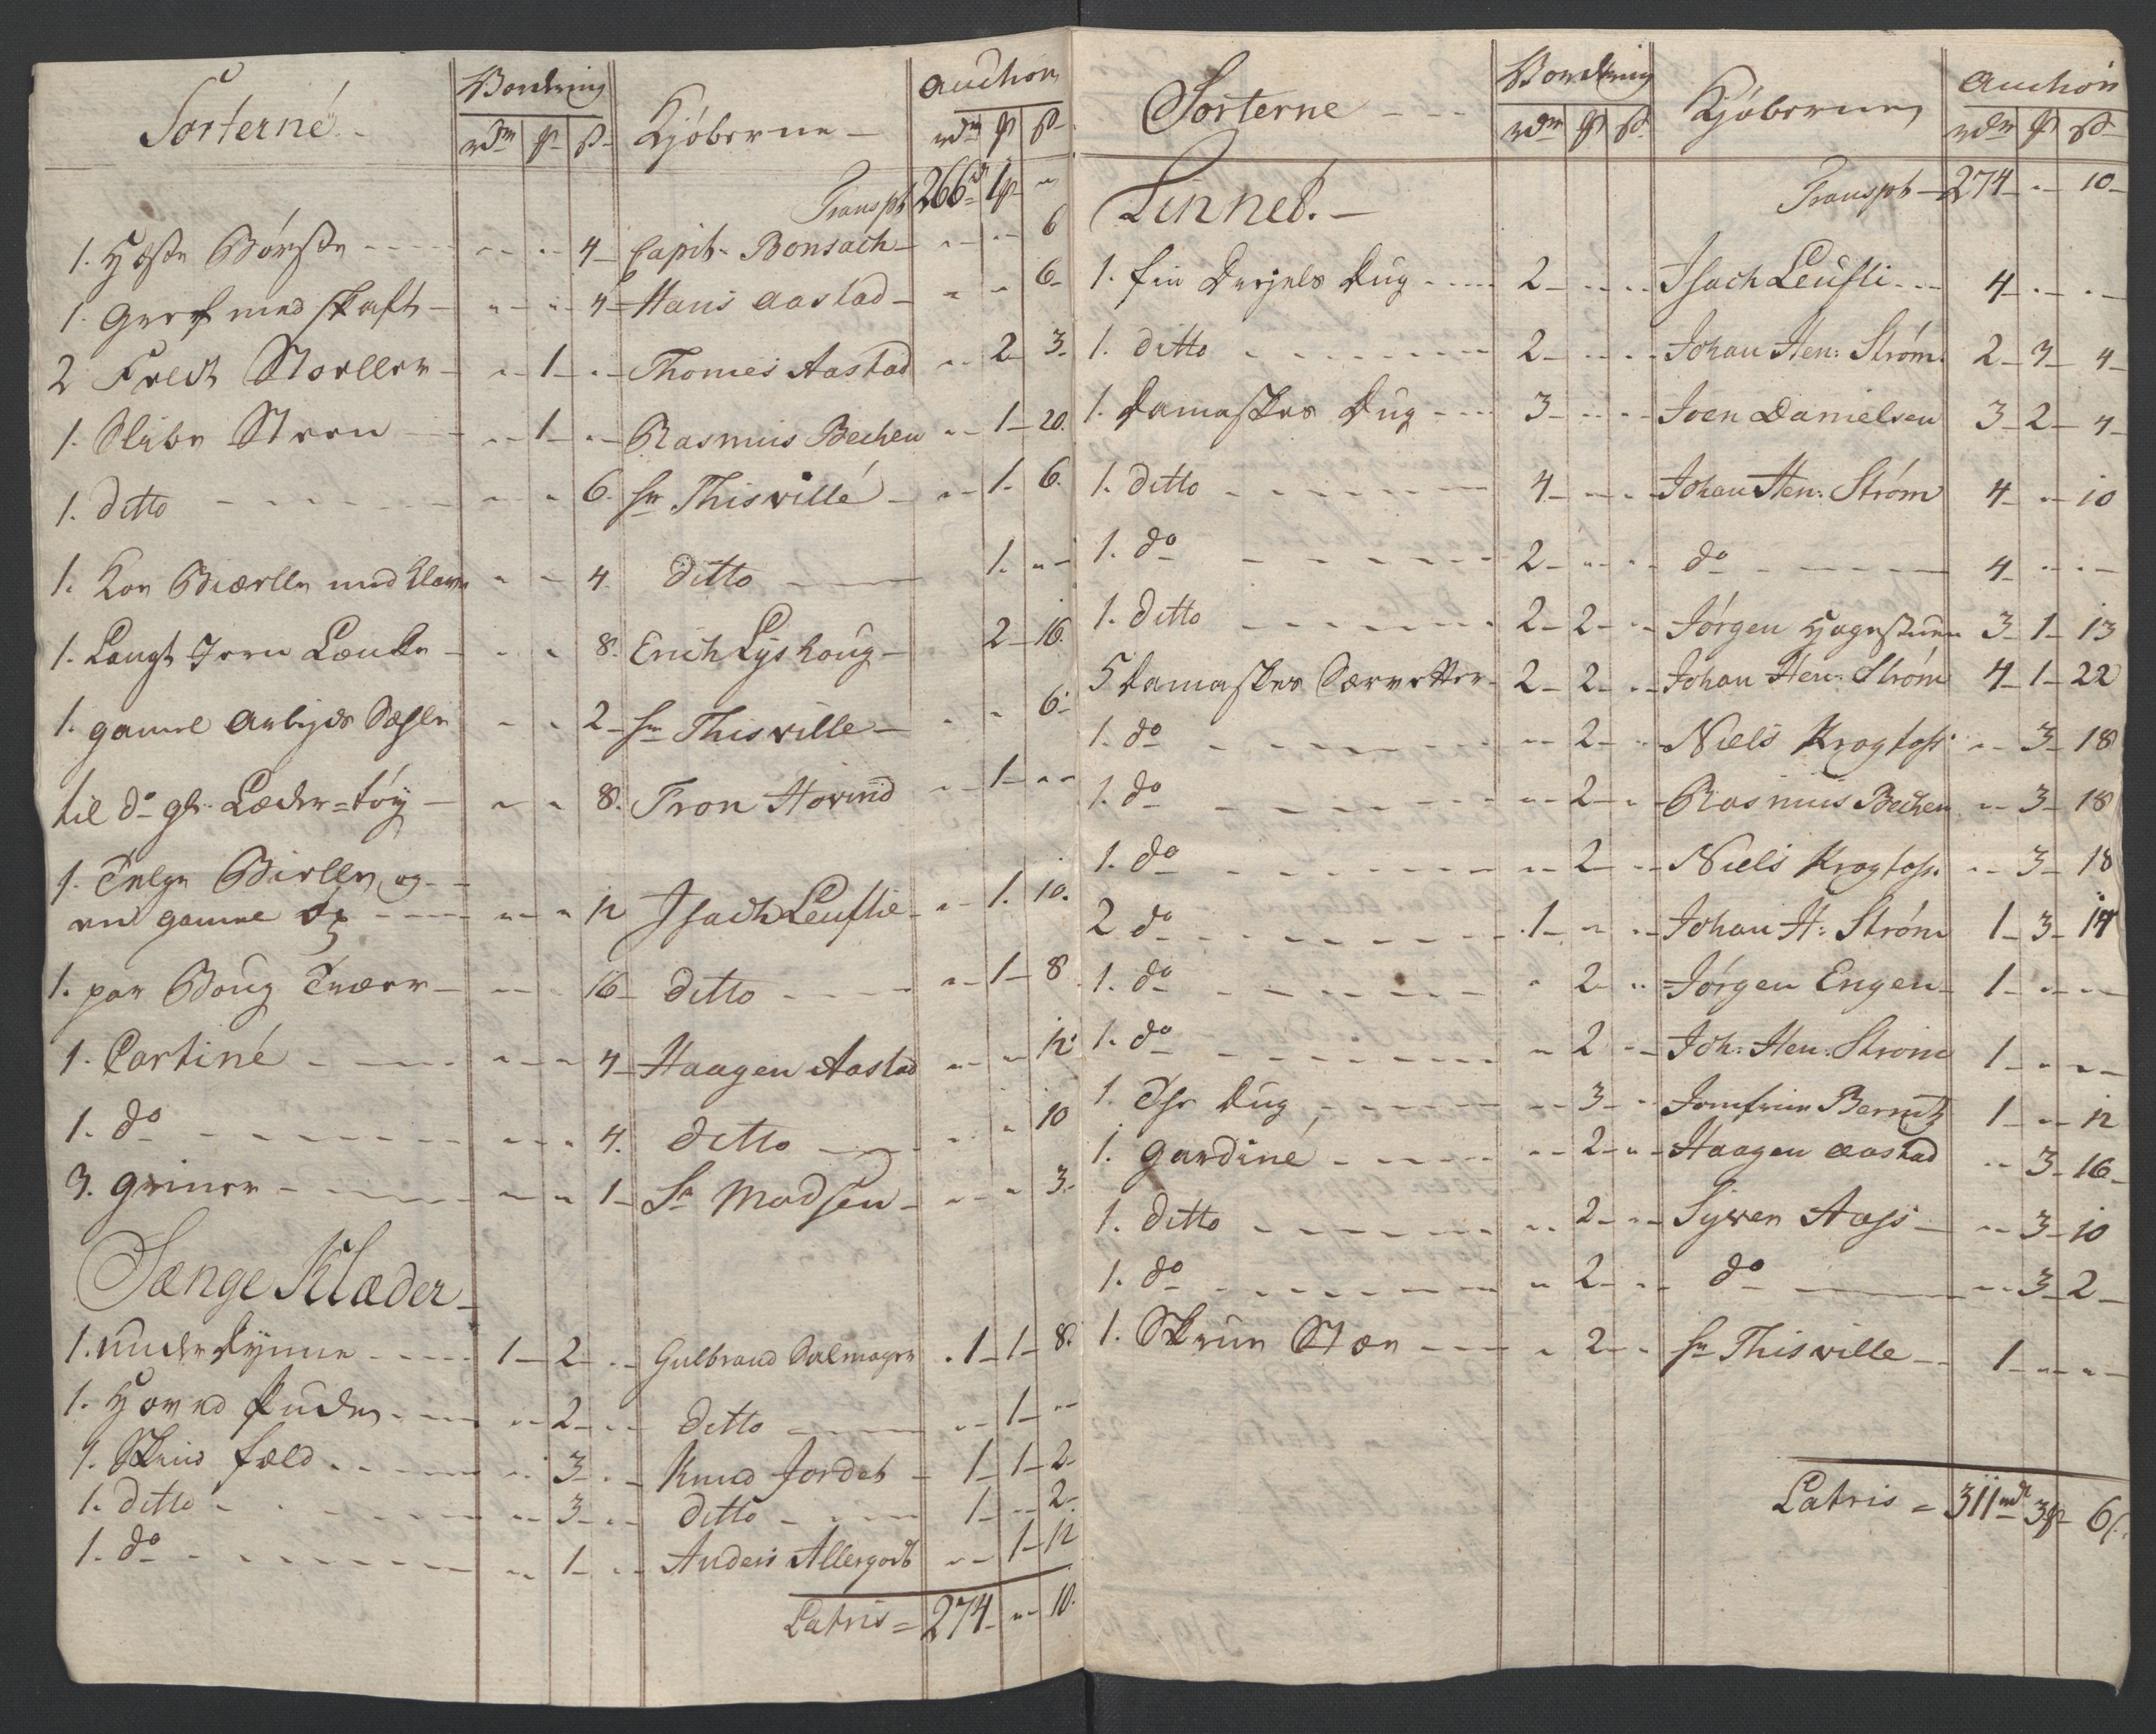 Sorterné - Vordring Kjøberne - Auction
rdr ꝑ ß rdr ꝑ ß
Transpt 266 rd 1 ꝑ "
1. Heste Børste - - - " " 4 Capit. Bonsach - " " 6
1. Greef med skaft - " " 4 Hans Aastad - " " 6
2 Fredt Stoeller - " 1 " Thomes Aastad " 2 3
1. Slibe Steen - " 1 " Rasmus Bechen " 1 20
1. ditto - - - " " 6. Hr Thisvillé - " 1. 6.
1. Koe Biælle med Klave " " 4. ditto - 1. "
1. Langt Jern Lænke - " " 8. Erich Lyshoug - 2 16
1. gamel Arbejds Sehle " " 2 Hr Thisville - " " 6
til do gl. Læder=tøy - " " 8. Tron Hovind " 1 "
1. Telge Bielle, og -
en gamel dº - - - " " 12 Isach Leuflie - " 1. 10.
1. par Boug Træer - " " 16 ditto - - - " 1 8
1. Cartiné - - - " " 4 Haagen Aastad " " 12
1. do - - - " " 4. ditto - " " 10
3. Griner - - - " " 1 Sr Madsen - " " 3
Sænge Klæder -
1. underdynne - - - 1 2 " Gulbrand Salmager 1 1 8.
1. Hoved Pude - - - " 2 " ditto - " 1 "
1. Skind fæld - - - " 3 " Knud Jordet - 1 1 2
1. ditto - - - " 3 " ditto - - 1 " 2
1. do - - - " 1 " Anders Allergodt " 1 12
Latris = 274 " 10.
Sorterne - - - Vordring Kjøberne Auction
rdr ꝑ ß rdr ꝑ ß
Transpt - 274 " 10
Linnet. -
1. fin Drejels Dug - - - 2 " " Isach Leufli - - - 4 " "
1. ditto - - - 2 " " Johan Hen: Strøm 2 3 4
1. Damaskes Dug - - - 3 " " Joen Danielsen 3 2 4
1. ditto - - - 4 " " Johan Hen: Strøm 4 " 10
1. do - - - 2 " " do - - - 4 " "
1. ditto - - - 2 2 " Jørgen Hagestuen 3 1 13
5 Damaskes Særvetter - 2 2 " Johan Hen: Strøm 4 1 22
1. do - - - " 2 " Niels Krogtoft " 3 18
1. do - - - " 2 " Rasmus Bechen " 3 18
1. do - - - " 2 " Niels Krogtoft " 3 18
2 do - - - 1 " " Johan H: Strøm 1 3 14
1. do - - - " 2 " Jørgen Engen 1 " "
1. do - - - " 2 " Joh: Hen: Strøm 1 " "
1. The Dug, - - - " 3 " Jomfrue Berntz 1 " 12
1. Gardiné - - - " 2 " Haagen Aastad " 3 16
1. ditto - - - " 2 " Syver Aass - " 3 10
1. do - - - " 2 " do - " 3 2
1. Skrim Stæn - - - " 2 " Hr Thisville - 1 " "
Latris = 311 rdr 3 ꝑ 6 ß.